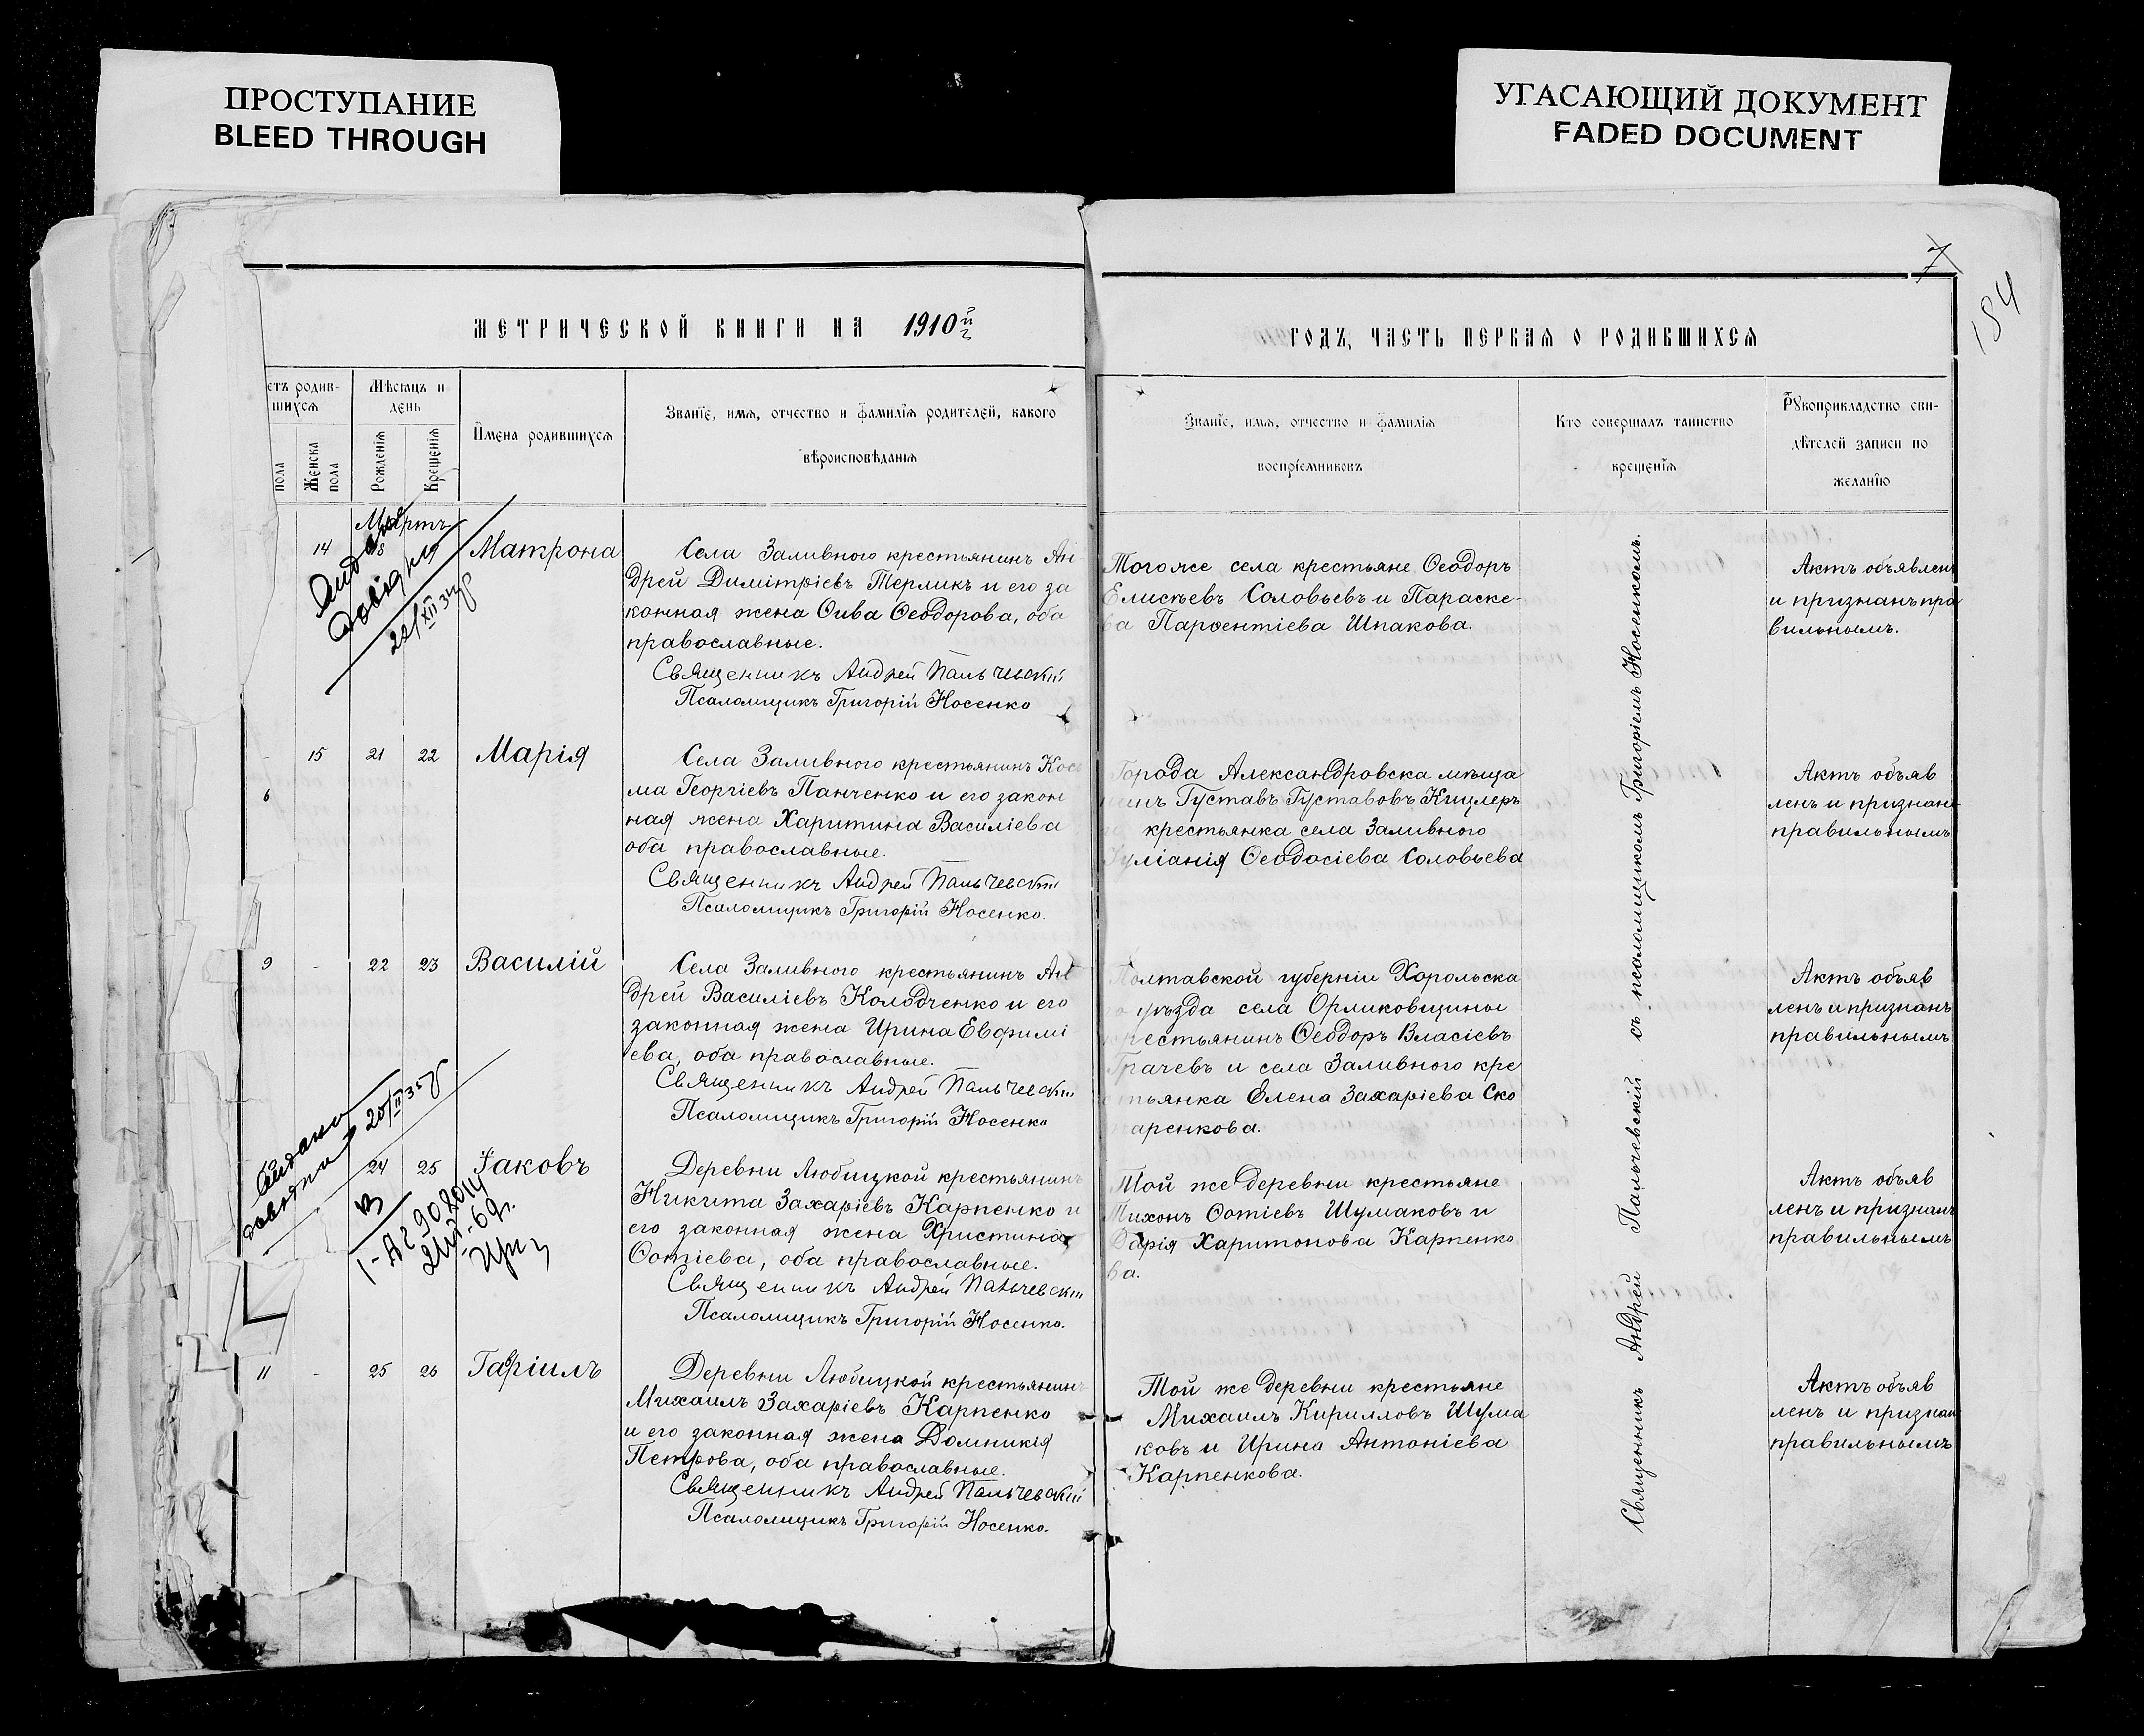 ПРОСТУПАНИЕ
BLEED THROUGH
УГАСАЮЩИЙ ДОКУМЕНТ
FADED DOCUMENT
7
184
МЕТРИЧЕСКОЙ КНИГИ НА 1910й
ГОДЪ, ЧАСТЬ ПЕРВАЯ О РОДИВШИХСЯ
етъ родив-
шихся
Мѣсяцъ и
день
пола
Женска пола
Рожденія
Крещенія
Имена родившихся
Званіе, имя, отчество и фамилія родителей, какого
вѣроисповѣданія
Званіе, имя, отчество и фамилія
воспріемниковъ
Кто совершалъ таинство
крещенія
Рукоприкладство сви-
дѣтелей записи по
желанію
Мартъ
14 18 19 Матрона
Села Заливного крестьянинъ Ан-
дрей Димітріевъ Терликъ и его за
конная жена Ѳива Ѳеодорова, оба
православные.
Священникъ Андрей Пальчевскій
Псаломщикъ Григорій Носенко
Того же села крестьяне Ѳеодоръ
Елисѣевъ Соловьевъ и Параске-
ва Парѳентіева Шпакова.
Актъ объявленъ
и признанъ пра
вильнымъ.
Видано
довідку
22/XII 34
- 15 21 22 Марія
6
Села Заливного крестьянинъ Кос
ма Георгіевъ Панченко и его закон
ная жена Харитина Василіева
оба православные.
Священникъ Андрей Пальчевскій
Псаломщикъ Григорій Носенко.
Города Александровска мѣща
нинъ Густавъ Густавовъ Кицлеръ
крестьянка села Заливного
Іуліанія Ѳеодосіева Соловьева
Актъ объяв
ленъ и признанъ
правильнымъ
9 - 22 23 Василій
Села Заливного крестьянинъ Ан
дрей Василіевъ Колодченко и его
законная жена Ирина Евфимі
ева, оба православные.
Священникъ Андрей Пальчевскій
Псаломщикъ Григорій Носенко
Полтавской губерніи Хорольска
го уѣзда села Орликовщины
крестьянинъ Ѳеодоръ Власіевъ
Грачевъ и села Заливного кре
стьянка Елена Захаріева Ско
аренкова.
Актъ объяв
ленъ и признанъ
правильнымъ
24 25 Іаковъ
Деревни Любицкой крестьянинъ
Никита Захаріевъ Карпенко и
его законная жена Христина
Ѳотіева, оба православные.
Священникъ Андрей Пальчевскій
Псаломщикъ Григорій Носенко.
Той же деревни крестьяне
Тихонъ Ѳотіевъ Шумаковъ и
Дарія Харитонова Карпенко
ва.
Актъ объяв
ленъ и признанъ
правильнымъ
Видано
довідку 20/II 35
11 - 25 26 Гавріилъ
Деревни Любицкой крестьянинъ
Михаилъ Захаріевъ Карпенко
и его законная жена Домникія
Петрова, оба православные.
Священникъ Андрей Пальчевскій
Псаломщикъ Григорій Носенко.
Той же деревни крестьяне
Михаилъ Кирилловъ Шума
ковъ и Ирина Антоніева
Карпенкова.
Актъ объяв
ленъ и признан
правильнымъ
Священникъ Андрей Пальчевскій съ псаломщикомъ Григоріемъ Носенкомъ.